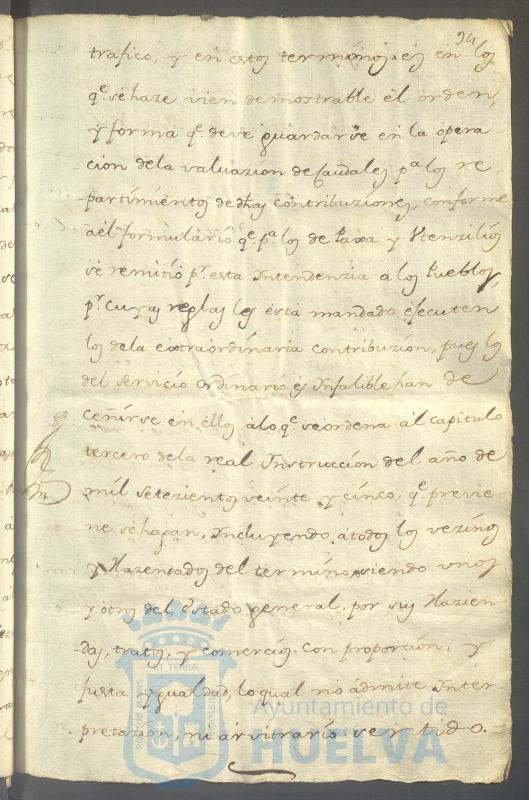 94
trafico, y en estos terminos es en los
q.e se haze vien demostrable el orden,
y forma q.e deve guardarse en la opera-
cion dela valuazion de Caudales p.a los re-
partimientos de dhas contribuziones, conforme
a el formulario q.e p.a los de Paxa y Utenzilios
se remitió p.r esta Intendenzia a los Pueblos,
p.r cuyas reglas les está mandado executen
los dela extraordinaria contribuzion, pues los
del servicio ordinario es Infalible han de
ceñirse en ellos a lo q.e se ordena al capitulo
tercero dela real Instruccion del año de
mil setezientos veinte y cinco, q.e previe-
ne se hagan, Incluyendo a todos los vezinos
y Hazendados del termino, siendo unos
y otros del Estado general, por sus Hazien-
das, tratos, y comercios con proporcion, y
justa ygualdad, lo qual no admite Inter-
pretazion, ni arvitrario sentido.
Ayuntamiento de
HUELVA